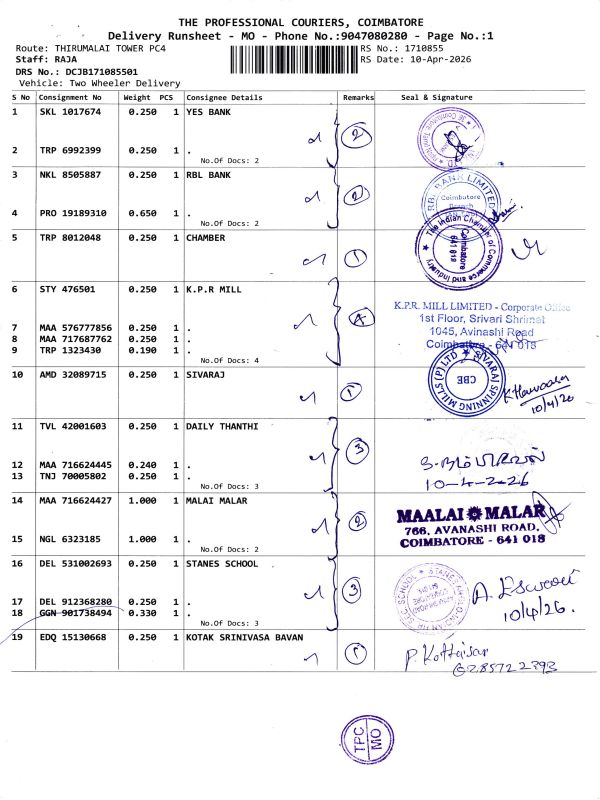 THE PROFESSIONAL COURIERS, COIMBATORE
Delivery Runsheet - MO - Phone No.:9047080280 - Page No.:1
Route: THIRUMALAI TOWER PC4 RS No.: 1710855
Staff: RAJA RS Date: 10-Apr-2026
DRS No.: DCJB171085501
Vehicle: Two Wheeler Delivery
S No Consignment No Weight PCS Consignee Details Remarks Seal & Signature
1 SKL 1017674 0.250 1 YES BANK
2
2 TRP 6992399 0.250 1 .
No.Of Docs: 2
3 NKL 8505887 0.250 1 RBL BANK
RBL BANK LIMITED
Coimbatore
Branch
2
4 PRO 19189310 0.650 1 .
No.Of Docs: 2
5 TRP 8012048 0.250 1 CHAMBER
The Indian Chamber of Commerce and Industry
Coimbatore
641 018
1
6 STY 476501 0.250 1 K.P.R MILL
K.P.R. MILL LIMITED - Corporate Office
1st Floor, Srivari Shrimat
1045, Avinashi Road
Coimbatore - 641 018
4
7 MAA 576777856 0.250 1 .
8 MAA 717687762 0.250 1 .
9 TRP 1323430 0.190 1 .
No.Of Docs: 4
10 AMD 32089715 0.250 1 SIVARAJ
SIVARAJ SPINNING MILLS (P) LTD
CBE
1
10/4/26
11 TVL 42001603 0.250 1 DAILY THANTHI
3
12 MAA 716624445 0.240 1 .
13 TNJ 70005802 0.250 1 .
10-4-2026
No.Of Docs: 3
14 MAA 716624427 1.000 1 MALAI MALAR
MAALAI MALAR
766, AVANASHI ROAD,
COIMBATORE - 641 018
2
15 NGL 6323185 1.000 1 .
No.Of Docs: 2
16 DEL 531002693 0.250 1 STANES SCHOOL
3
A. Eswari
10/4/26.
17 DEL 912368280 0.250 1 .
18 GGN 901738494 0.330 1 .
No.Of Docs: 3
19 EDQ 15130668 0.250 1 KOTAK SRINIVASA BAVAN
TPC
MO